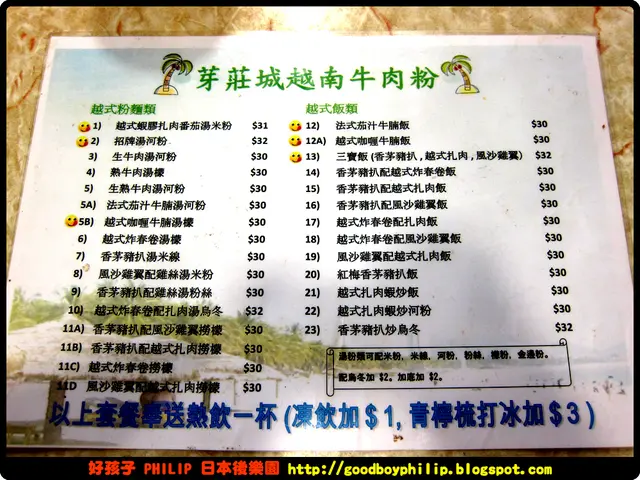 芽莊城越南牛肉粉
越式粉麵類
1) 越式蝦膠扎肉番茄湯米粉 $31
2) 招牌湯河粉 $32
3) 生牛肉湯河粉 $30
4) 熟牛肉湯檬 $30
5) 生熟牛肉湯河粉 $30
5A) 法式茄汁牛腩湯河粉 $30
5B) 越式咖喱牛腩湯檬 $30
6) 越式炸春卷湯檬 $30
7) 香茅豬扒湯米線 $30
8) 風沙雞翼配雞絲湯米粉 $30
9) 香茅豬扒配雞絲湯粉絲 $30
10) 越式炸春卷配扎肉湯烏冬 $32
11A) 香茅豬扒配風沙雞翼撈檬 $30
11B) 香茅豬扒配越式扎肉撈檬 $30
11C) 越式炸春卷撈檬 $30
11D 風沙雞翼配越式扎肉撈檬 $30
越式飯類
12) 法式茄汁牛腩飯 $30
12A) 越式咖喱牛腩飯 $30
13) 三寶飯 (香茅豬扒 , 越式扎肉 , 風沙雞翼) $32
14) 香茅豬扒配越式炸春卷飯 $30
15) 香茅豬扒配越式扎肉飯 $30
16) 香茅豬扒配風沙雞翼飯 $30
17) 越式炸春卷配扎肉飯 $30
18) 越式炸春卷配風沙雞翼飯 $30
19) 風沙雞翼配越式扎肉飯 $30
20) 紅梅香茅豬扒飯 $30
21) 越式扎肉蝦炒飯 $30
22) 越式扎肉蝦炒河粉 $30
23) 香茅豬扒炒烏冬 $32
湯粉類可配米粉, 米線, 河粉, 粉絲, 檬粉, 金邊粉。
配烏冬加 $2。加底加 $2。
以上套餐奉送熱飲一杯 (凍飲加 $1, 青檸梳打冰加 $3 )
好孩子 PHILIP 日本後樂園 http://goodboyphilip.blogspot.com